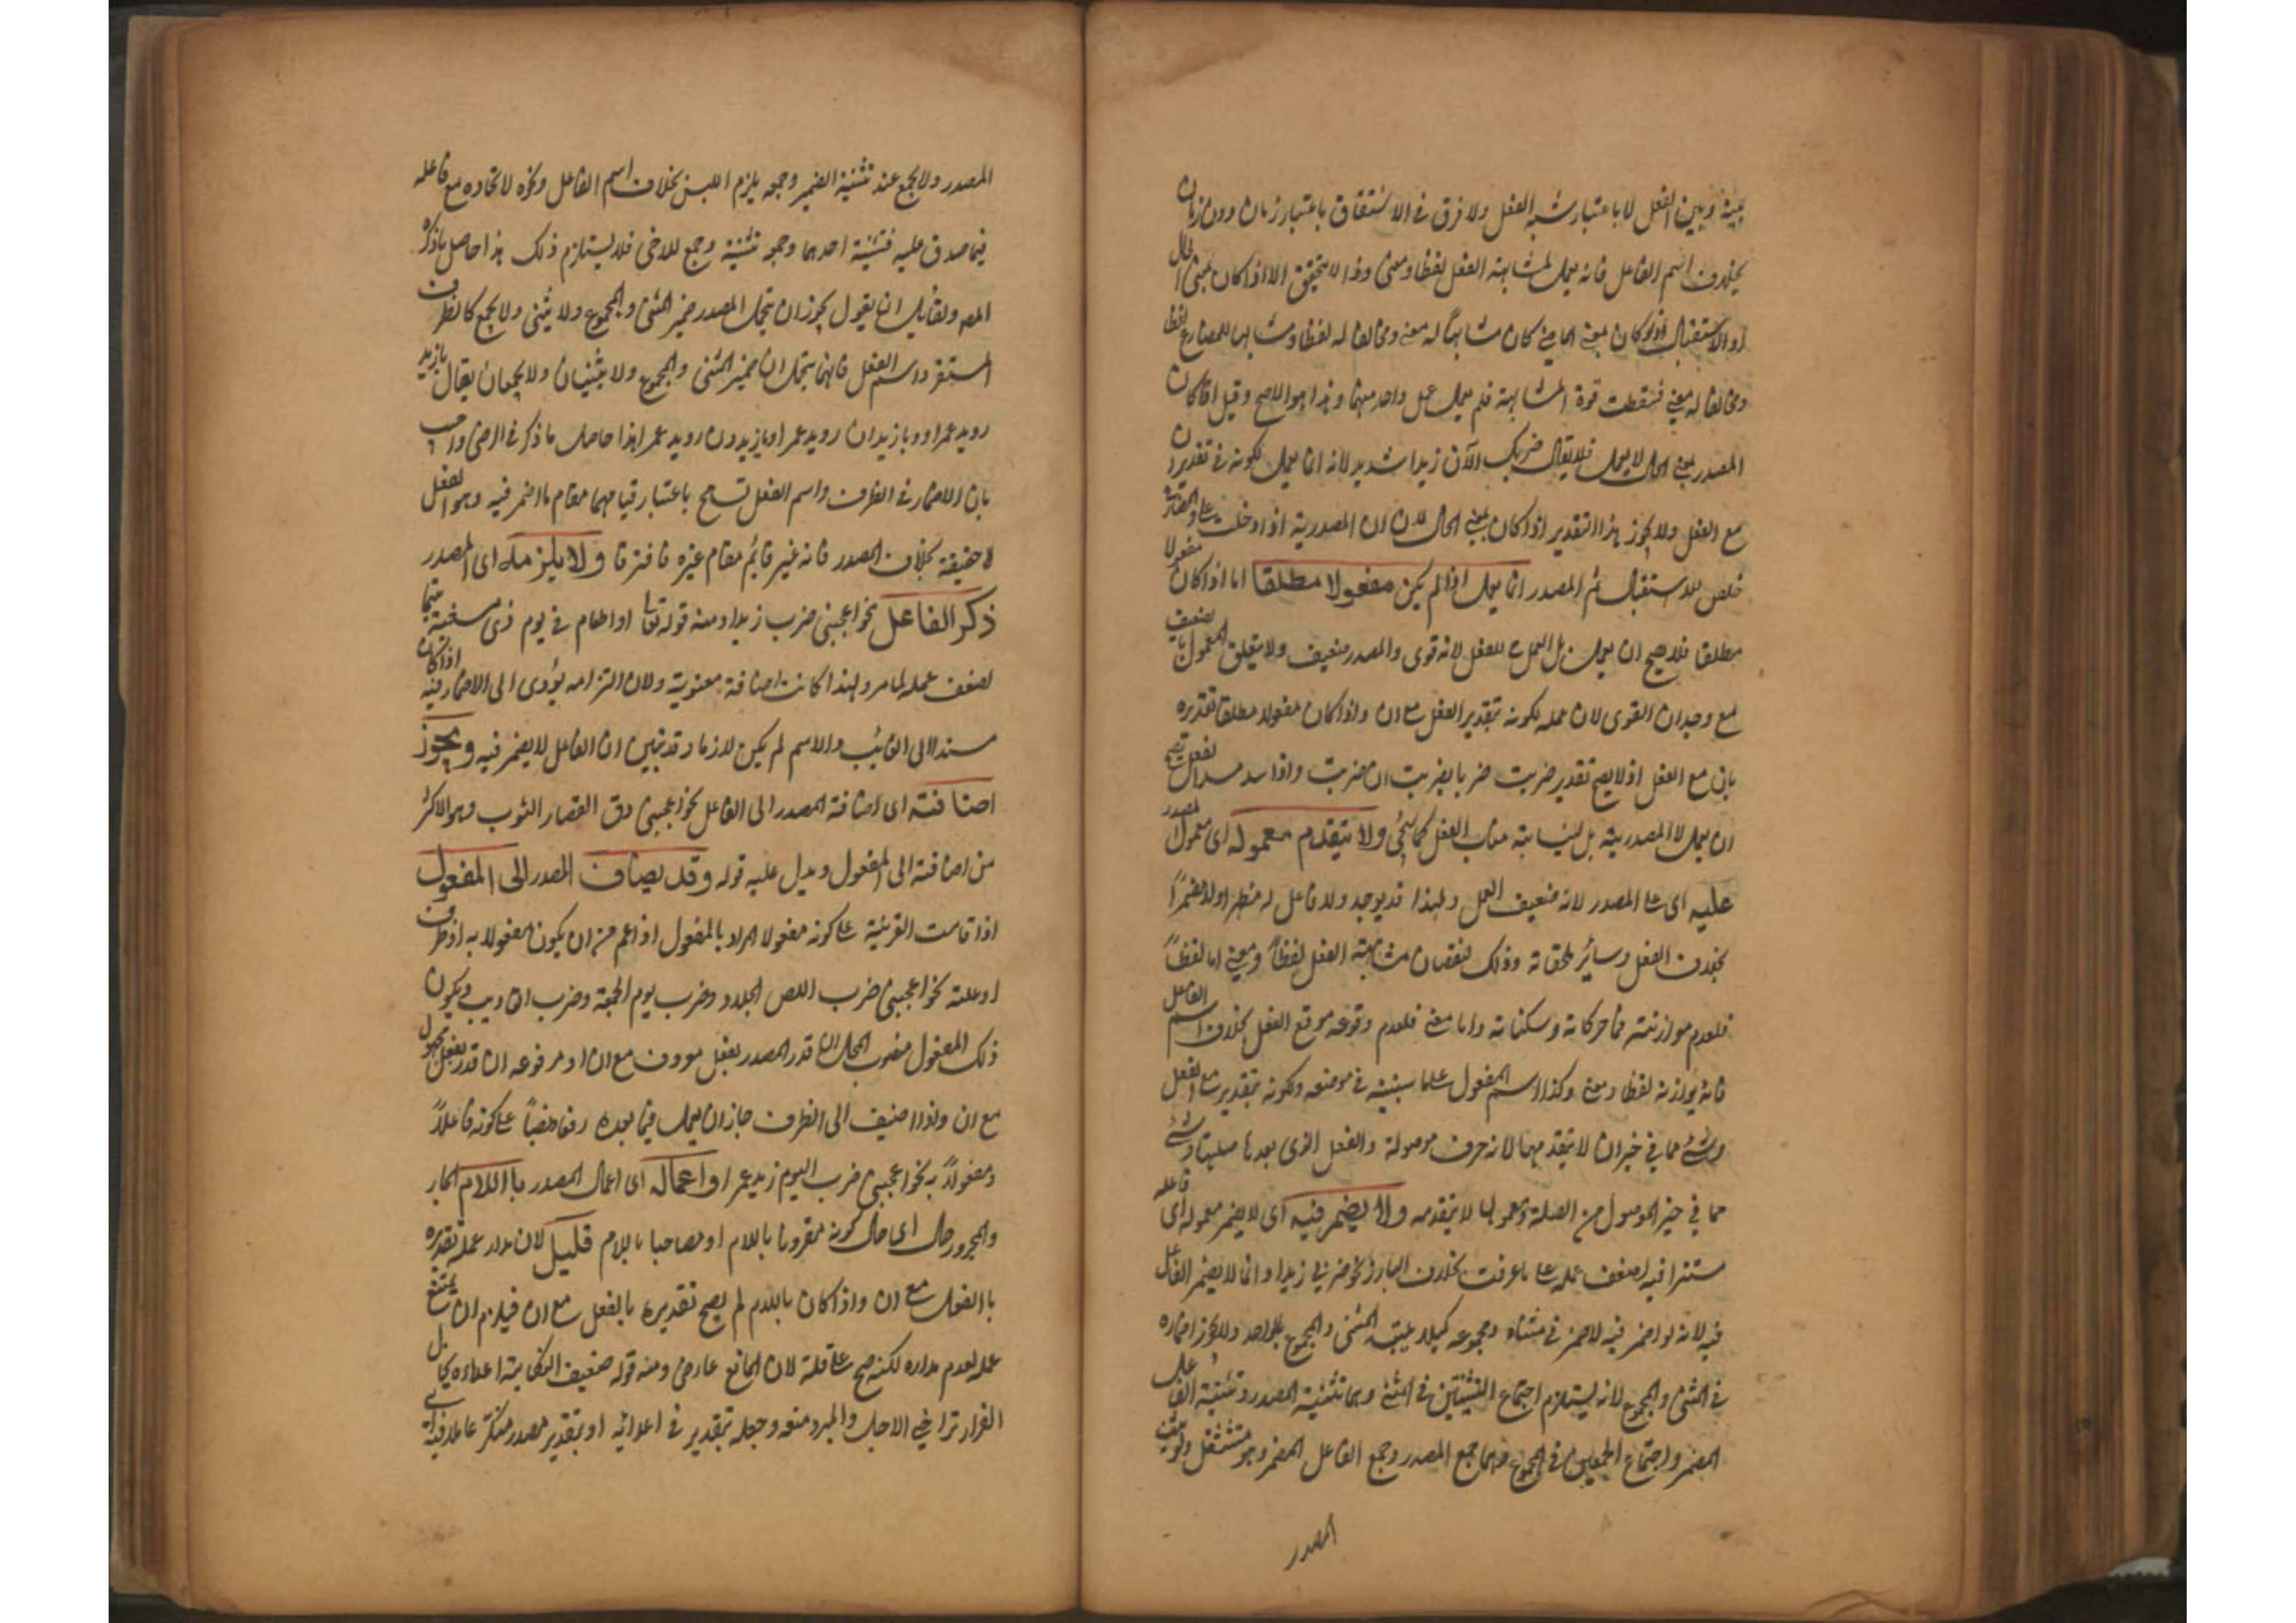 بينه وبين الفعل لا باعتبار شبه الفعل ولا فرق في الاشتقاق باعتبار زمان دون زمان
بخلاف اسم الفاعل فانه يعمل لمشابهة الفعل لفظا ومعنى وذا لا يتحقق الا اذا كان بمعنى الحال
او الاستقبال اذ لو كان بمعنى الماضي كان مشابها له معنى ومخالفا له لفظا ومشابها للمضارع لفظا
ومخالفا له معنى فسقطت قوة المشابهة فلم يعمل عمل واحد منهما وهذا هو الاصح وقيل اذا كان
المصدر بمعنى الحال لا يعمل فلا يقال ضربك الآن زيدا شديد لانه انما يعمل لكونه في تقدير ان
مع الفعل ولا يجوز هذا التقدير اذا كان بمعنى الحال لان ان المصدرية اذا دخلت على المضارع
خلص للاستقبال ثم المصدر انما يعمل اذا لم يكن مفعولا مطلقا اما اذا كان مفعولا
مطلقا فلا يصح ان يعمل بل العمل للفعل لانه قوى والمصدر ضعيف ولا يتعلق المعمول بالضعيف
مع وجدان القوى لان عمله لكونه بتقدير الفعل مع ان واذا كان مفعولا مطلقا تقديره
بان مع الفعل اذ لا يصح تقدير ضربت ضربا بضربت ان ضربت واذا سد مسد الفعل
ان يعمل لا للمصدرية بل لنيابته مناب الفعل كما يجئ ولا يتقدم معموله اى معمول المصدر
عليه اى على المصدر لانه ضعيف العمل ولهذا قد يوجد ولا فاعل له مظهرا ولا مضمرا
بخلاف الفعل وسائر ملحقاته وذلك لنقصان مشابهته الفعل لفظا ومعنى اما لفظا
فلعدم موازنته في حركاته وسكناته واما معنى فلعدم وقوعه موقع الفعل بخلاف اسم الفاعل
فانه يوازنه لفظا ومعنى وكذا اسم المفعول على ما سنبينه في موضعه ولكونه بتقدير ان مع الفعل
وشئ مما في خبر ان لا يتقدمها لانه حرف موصولة والفعل الذى بعدها صلتها وشئ
مما في حيز الموصول من الصلة ومعمولها لا يتقدمه ولا يضمر فيه اى لا يضمر معموله اى فاعله
مستترا فيه لضعف عمله على ما عرفت بخلاف البارز نحو ضربي زيدا وانما لا يضمر الفاعل
فيه لانه لو اضمر فيه لاضمر في مثناه ومجموعه كيلا يلتبس المثنى والمجموع بالواحد ولا يجوز اضماره
في المثنى والمجموع لانه يستلزم اجتماع التثنيتين في المثنى وهما تثنية المصدر وتثنية الفاعل
المضمر واجتماع الجمعين في المجموع وهما جمع المصدر وجمع الفاعل المضمر وهو مستثقل ولو لم يثن
المصدر
المصدر ولا يجمع عند تثنية الضمير وجمعه يلزم اللبس بخلاف اسم الفاعل ونحوه لاتحاده مع فاعله
فيما صدق عليه فتثنية احدهما وجمعه تثنية وجمع للاخر فلا يستلزم ذلك هذا حاصل ما ذكره
المص ولقائل ان يقول يجوز ان يتحمل المصدر ضمير المثنى والمجموع ولا يثنى ولا يجمع كالظرف
المستقر واسم الفعل فانهما يتحملان ضمير المثنى والمجموع ولا يثنيان ولا يجمعان يقال يا زيد
رويد عمرا ويا زيدان رويد عمرا ويا زيدون رويد عمرا هذا حاصل ما ذكر في الرضى واجيب
بان الاضمار في الظرف واسم الفعل تسامح باعتبار قيامهما مقام ما اضمر فيه وهو الفعل
لا حقيقة بخلاف المصدر فانه غير قائم مقام غيره فافترقا ولا يلزمه اى المصدر
ذكر الفاعل نحو اعجبني ضرب زيدا ومنه قوله تعالى او اطعام في يوم ذى مسغبة يتيما
لضعف عمله لما مر ولهذا كانت اضافته معنوية ولان التزامه يؤدى الى الاضمار فيه اذا كان
مسندا الى الغائب والاسم لم يكن لازما وقد تبين ان الفاعل لا يضمر فيه ويجوز
اضافته اى اضافة المصدر الى الفاعل نحو اعجبني دق القصار الثوب وهو الاكثر
من اضافته الى المفعول ويدل عليه قوله وقد يضاف المصدر الى المفعول
اذا قامت القرينة على كونه مفعولا المراد بالمفعول اذ اعم من ان يكون مفعولا به او ظرف
او علته نحو اعجبني ضرب اللص الجلاد وضرب يوم الجمعة وضرب التاديب ويكون
ذلك المفعول منصوب المحل ان قدر المصدر بفعل معروف مع ان او مرفوعه ان قدر بفعل مجهول
مع ان واذا اضيف الى الظرف جاز ان يعمل فيما بعده رفعا ونصبا على كونه فاعلا
ومفعولا به نحو اعجبني ضرب اليوم زيد عمرا واعماله اى اعمال المصدر باللام الجار
والمجرور حال اى حال كونه مقرونا باللام او مصاحبا باللام قليل لان مدار عمله تقديره
بالفعل مع ان واذا كان باللام لم يصح تقديره بالفعل مع ان فيلزم ان يمتنع
عمله لعدم مداره لكنه صح على قلة لان المانع عارض ومنه قوله ضعيف النكاية اعداءه يخال
الفرار تراخي الاجل والمبرد منعه وجعله بتقدير في اعدائه او بتقدير مصدر منكر عاملا فيه